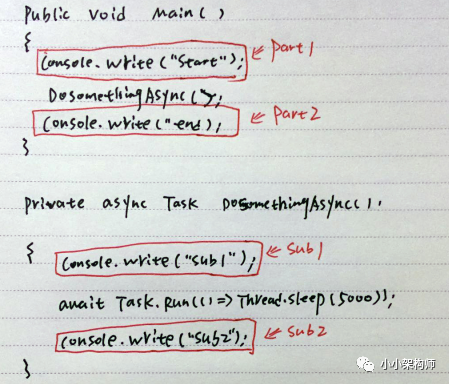 Public void Main()
{
Console.write("Start"); ← Part1
DosomethingAsync();
Console.write("end); ← Part2
}
Private async Task DosomethingAsync().
{
Console.write("Sub1"); ← Sub1
await Task.Run(()=>Thread.sleep(5000));
Console.write("Sub2"); ← Sub2
}
小小架构师